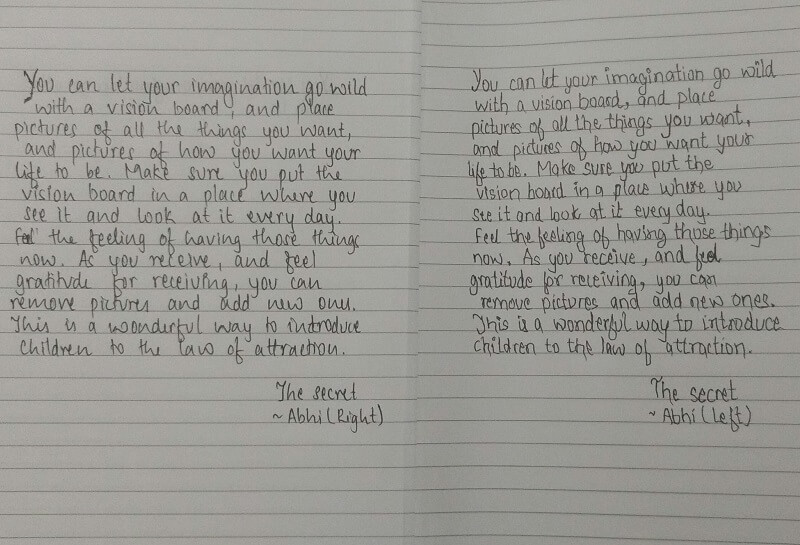 You can let your imagination go wild
with a vision board, and place
pictures of all the things you want,
and pictures of how you want your
life to be. Make sure you put the
vision board in a place where you
see it and look at it every day.
Feel the feeling of having those things
now. As you receive, and feel
gratitude for receiving, you can
remove pictures and add new ones.
This is a woonderful way to introduce
children to the law of attraction.
The secret
~ Abhi (Right)
You can let your imagination go wild
with a vision board, and place
pictures of all the things you want,
and pictures of how you want your
life to be. Make sure you put the
vision board in a place where you
see it and look at it every day.
Feel the feeling of having those things
now. As you receive, and feel
gratitude for receiving, you can
remove pictures and add new ones.
This is a wonderful way to introduce
children to the law of attraction.
The secret
~ Abhi (Left)